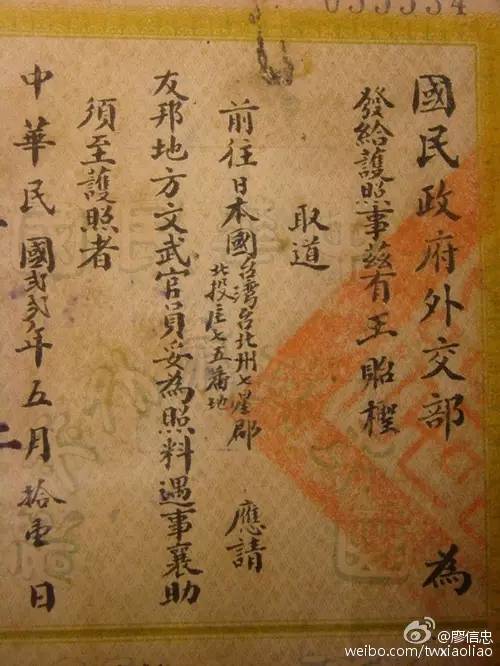 055534
國民政府外交部 為
發給護照事茲有王貽樫
取道
前往日本國台湾台北州七星郡
北投庄七五番地 應請
友邦地方文武官員妥為照料遇事襄助
須至護照者
中華民國貳贰年五月拾壹日
廖信忠
weibo.com/twxiaoliao